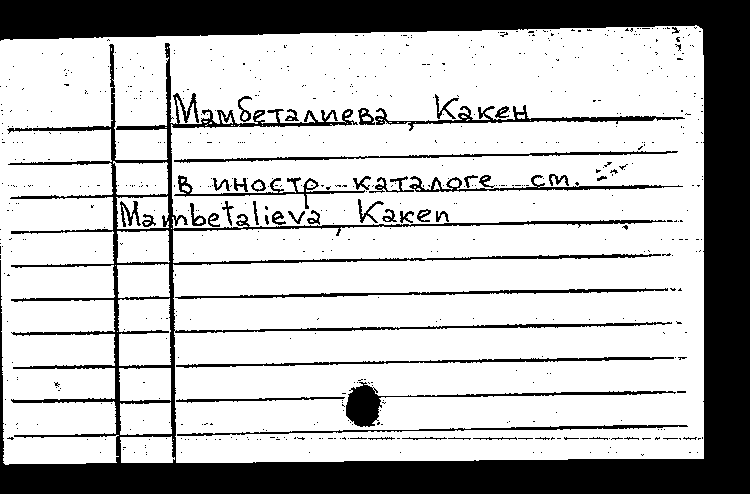 Мамбеталиева, Какен
в иностр. каталоге см.
Mambetalieva, Kaken